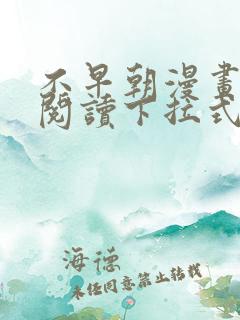 不早朝漫畫
閱讀下拉式
海德
未经同意禁止转载